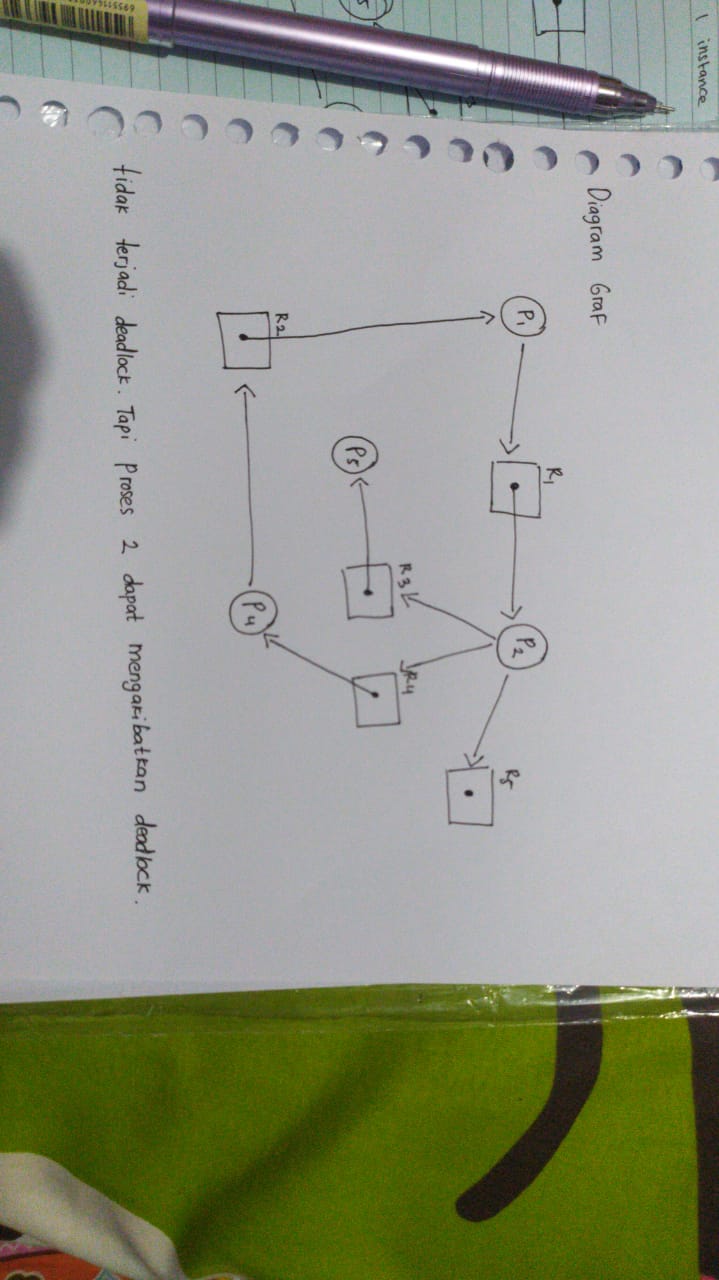 1 instance
Diagram Graf
P1
R1
P2
R5
R3
R4
P5
R2
P4
tidak terjadi deadlock. Tapi proses 2 dapat mengakibatkan deadlock.